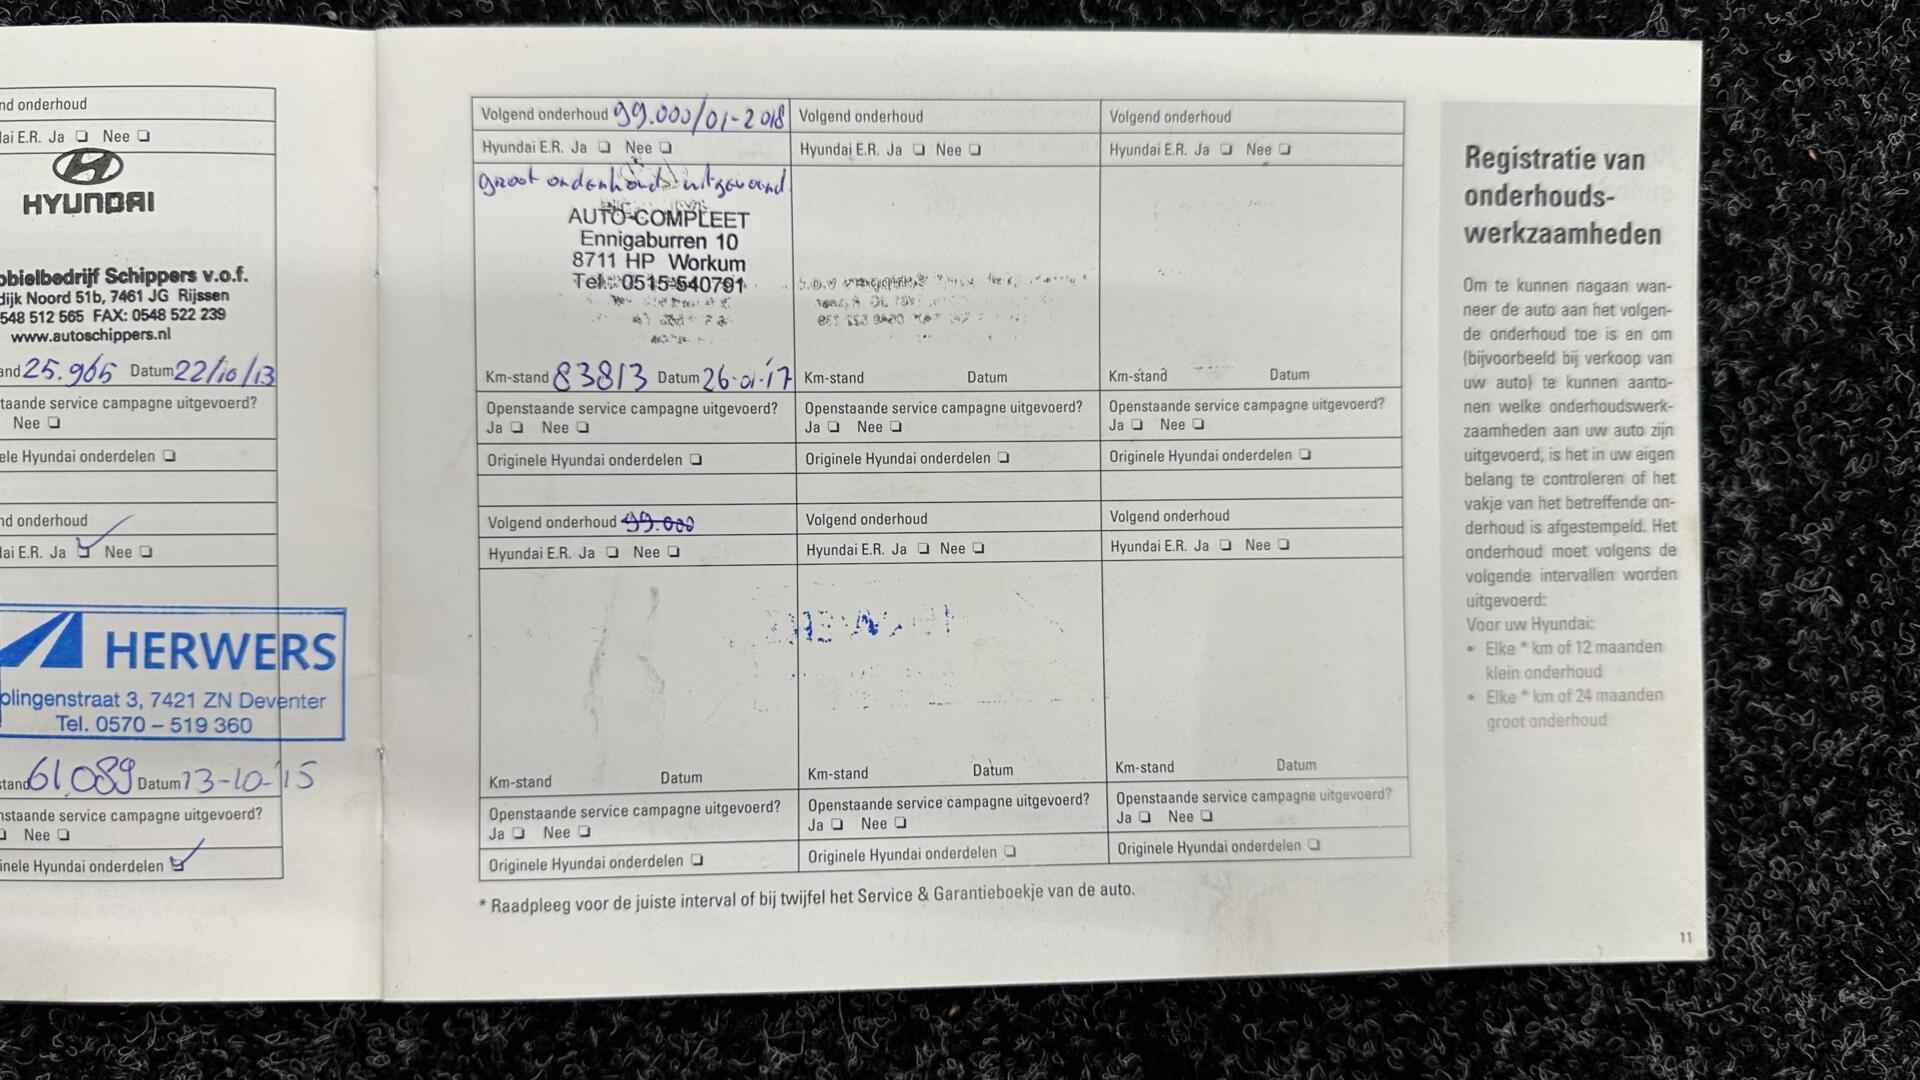 nd onderhoud
ai E.R. Ja ❏ Nee ❏
HYUNDAI
obielbedrijf Schippers v.o.f.
dijk Noord 51b, 7461 JG Rijssen
548 512 565 FAX: 0548 522 239
www.autoschippers.nl
and 25.965 Datum 22/10/13
taande service campagne uitgevoerd?
Nee ❏
ele Hyundai onderdelen ❏
nd onderhoud
ai E.R. Ja ❏ Nee ❏
HERWERS
plingenstraat 3, 7421 ZN Deventer
Tel. 0570 – 519 360
tand 61.089 Datum 13-10-'15
nstaande service campagne uitgevoerd?
Nee ❏
inele Hyundai onderdelen ❏
Volgend onderhoud 99.000/01-2018
Hyundai E.R. Ja ❏ Nee ❏
groot onderhoud uitgevoerd
AUTO-COMPLEET
Ennigaburren 10
8711 HP Workum
Tel.: 0515-540791
Km-stand 83813 Datum 26-01-'17
Openstaande service campagne uitgevoerd?
Ja ❏ Nee ❏
Originele Hyundai onderdelen ❏
Volgend onderhoud
Hyundai E.R. Ja ❏ Nee ❏
Km-stand Datum
Openstaande service campagne uitgevoerd?
Ja ❏ Nee ❏
Originele Hyundai onderdelen ❏
Volgend onderhoud
Hyundai E.R. Ja ❏ Nee ❏
Km-stand Datum
Openstaande service campagne uitgevoerd?
Ja ❏ Nee ❏
Originele Hyundai onderdelen ❏
Volgend onderhoud 99.000
Hyundai E.R. Ja ❏ Nee ❏
Km-stand Datum
Openstaande service campagne uitgevoerd?
Ja ❏ Nee ❏
Originele Hyundai onderdelen ❏
Volgend onderhoud
Hyundai E.R. Ja ❏ Nee ❏
Km-stand Datum
Openstaande service campagne uitgevoerd?
Ja ❏ Nee ❏
Originele Hyundai onderdelen ❏
Volgend onderhoud
Hyundai E.R. Ja ❏ Nee ❏
Km-stand Datum
Openstaande service campagne uitgevoerd?
Ja ❏ Nee ❏
Originele Hyundai onderdelen ❏
* Raadpleeg voor de juiste interval of bij twijfel het Service & Garantieboekje van de auto.
Registratie van
onderhouds-
werkzaamheden
Om te kunnen nagaan wan-
neer de auto aan het volgen-
de onderhoud toe is en om
(bijvoorbeeld bij verkoop van
uw auto) te kunnen aanto-
nen welke onderhoudswerk-
zaamheden aan uw auto zijn
uitgevoerd, is het in uw eigen
belang te controleren of het
vakje van het betreffende on-
derhoud is afgestempeld. Het
onderhoud moet volgens de
volgende intervallen worden
uitgevoerd:
Voor uw Hyundai:
• Elke * km of 12 maanden
klein onderhoud
• Elke * km of 24 maanden
groot onderhoud
11